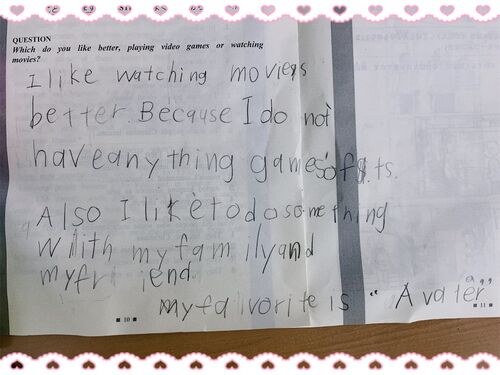 QUESTION
Which do you like better, playing video games or watching
movies?
I like watching movies
better. Because I do not
have any thing games
Also I like to do something
with my family and
my friend
My favorite is "Avater"
■ 10 ■
■ 11 ■